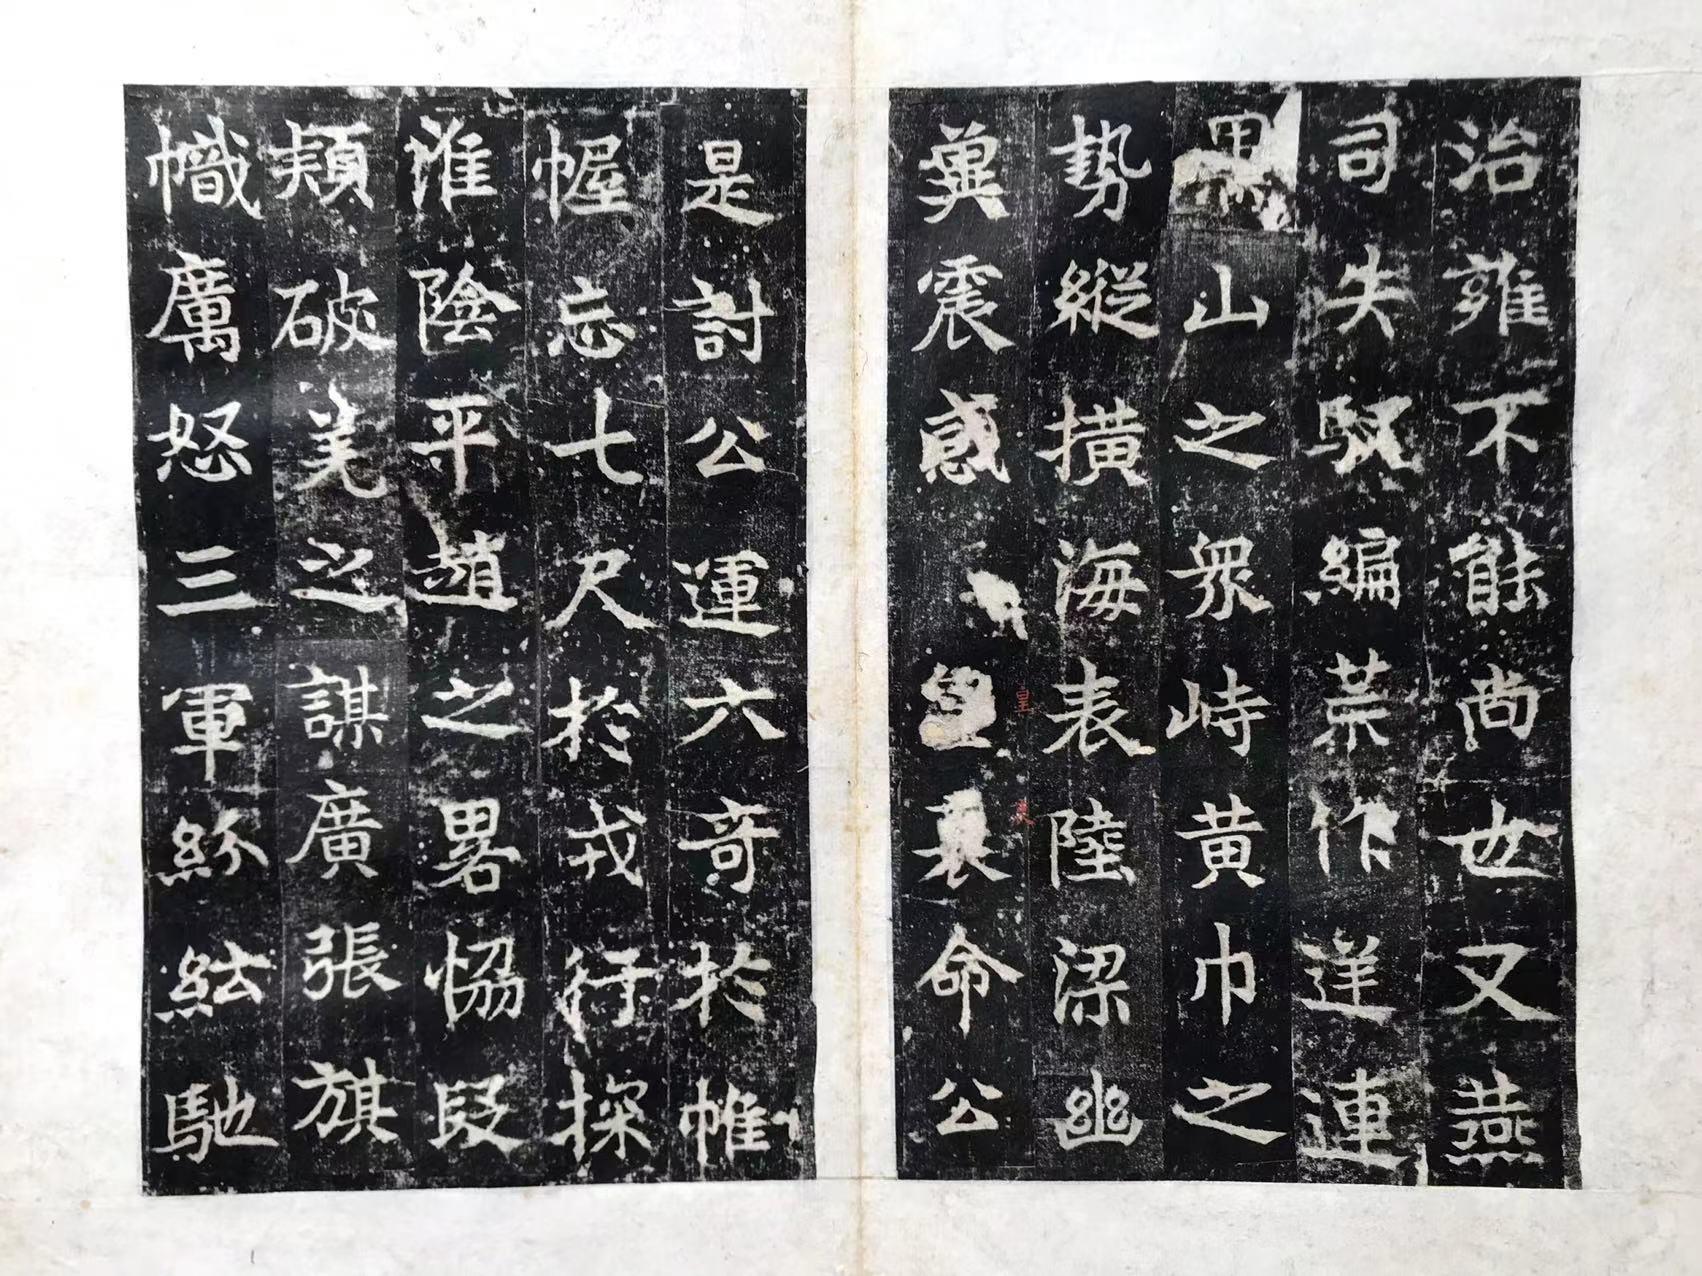 治雍不能尚世又燕
司失馭編菜作逆連
黑山之衆峙黃巾之
勢縱橫海表陸梁幽
冀震惑皇衷命公
皇
衷
是討公運六奇於帷
幄忘七尺於戎行探
淮陰平趙之畧恊段
熲破羌之謀廣張旗
幟厲怒三軍紛紜馳